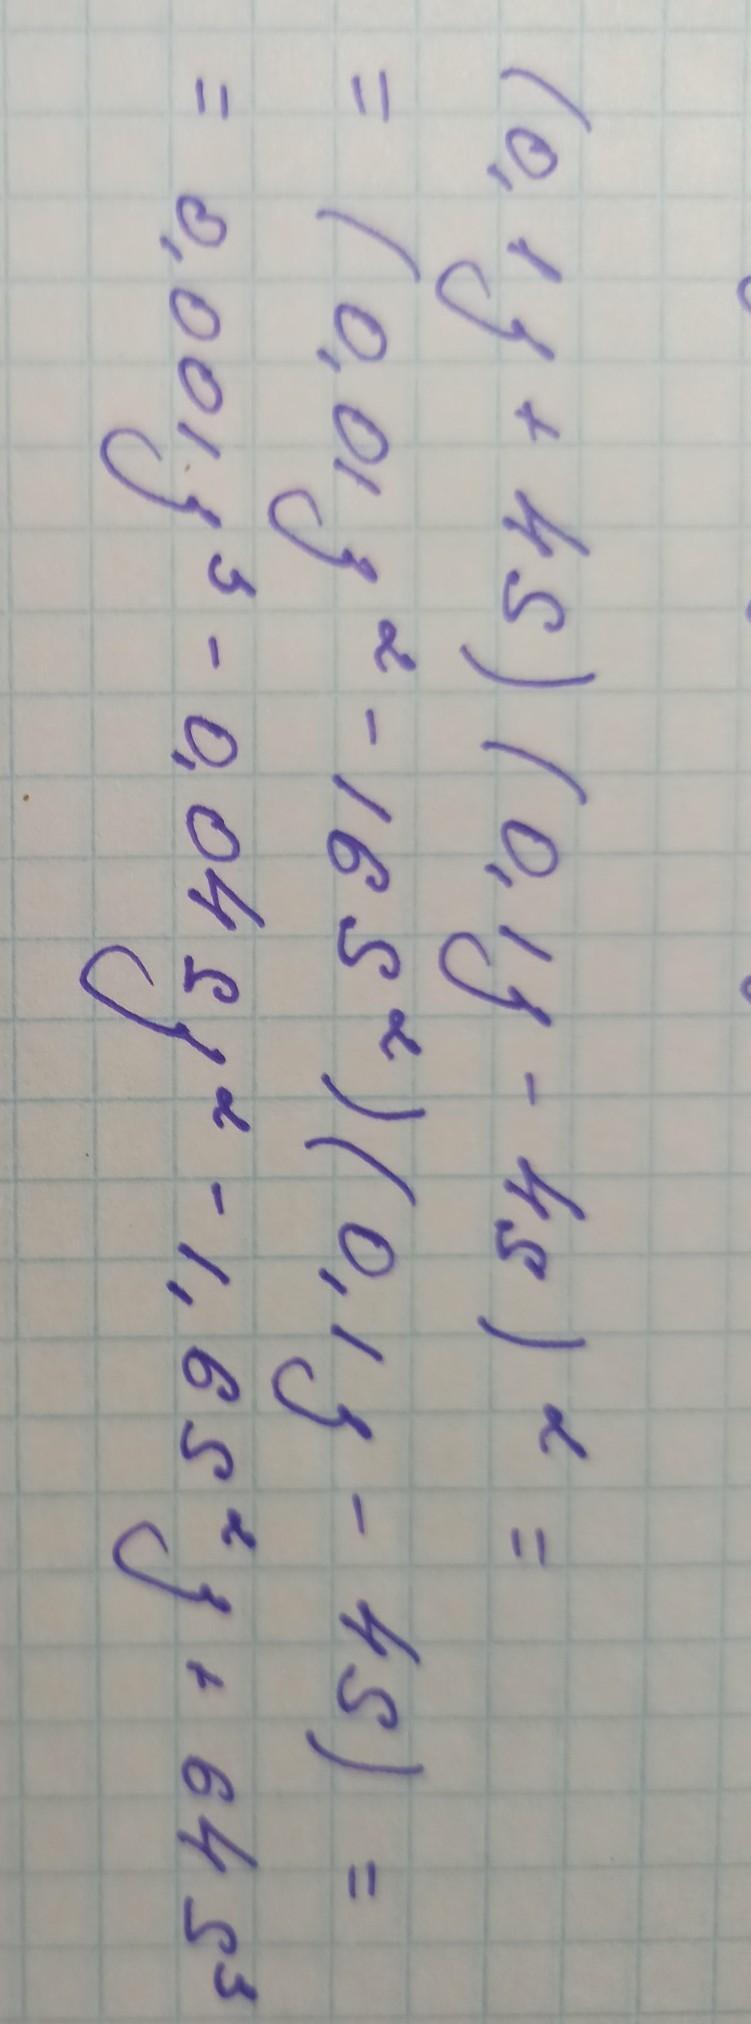 (0,1y + 4s)(0,1y - 4s)² =
= (0,01y² - 16s²)(0,1y - 4s) =
= 0,001y³ - 0,04sy² - 1,6s²y + 64s³